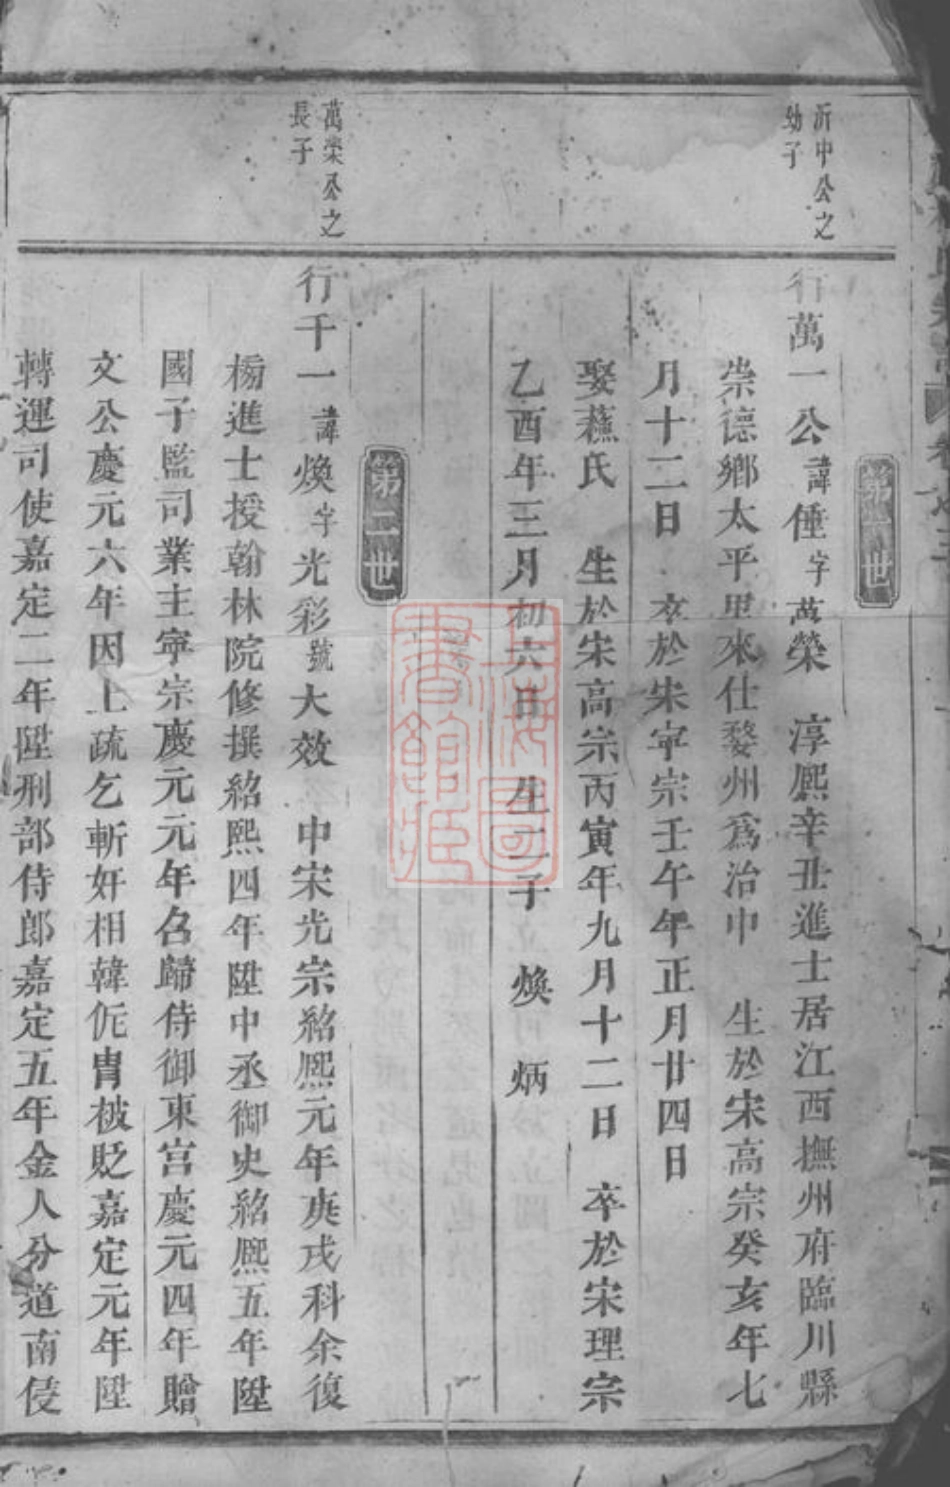 第一世
沂中公之
幼子
行萬一公諱倕字萬榮　淳熙辛丑進士居江西撫州府臨川縣
崇德鄉太平里來仕婺州爲治中　生於宋高宗癸亥年七
月十二日　卒於宋寧宗壬午年正月廿四日
娶蘓氏　生於宋高宗丙寅年九月十二日　卒於宋理宗
乙酉年三月初六日　生二子　煥　炳
第二世
萬榮公之
長子
行千一諱煥字光彩號大效　中宋光宗紹熙元年庚戌科余復
榜進士授翰林院修撰紹熙四年陞中丞御史紹熙五年陞
國子監司業主寧宗慶元元年召歸侍御東宮慶元四年贈
文公慶元六年因上疏乞斬奸相韓侂冑被貶嘉定元年陞
轉運司使嘉定二年陞刑部侍郎嘉定五年金人分道南侵
上海圖
書館藏